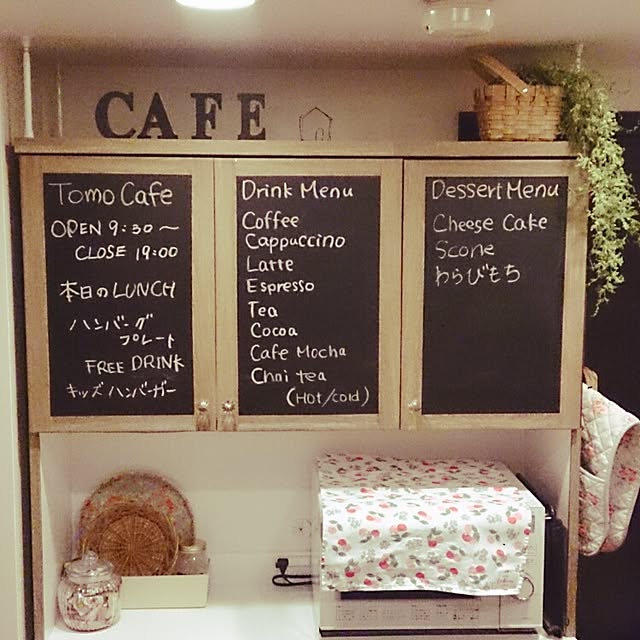 CAFE
Tomo Cafe
OPEN 9:30〜
CLOSE 19:00
本日のLUNCH
ハンバーグ
プレート
FREE DRINK
キッズハンバーガー
Drink Menu
Coffee
Cappuccino
Latte
Espresso
Tea
Cocoa
Cafe Mocha
Chai tea
(HOT/cold)
Dessert Menu
Cheese Cake
Scone
わらびもち